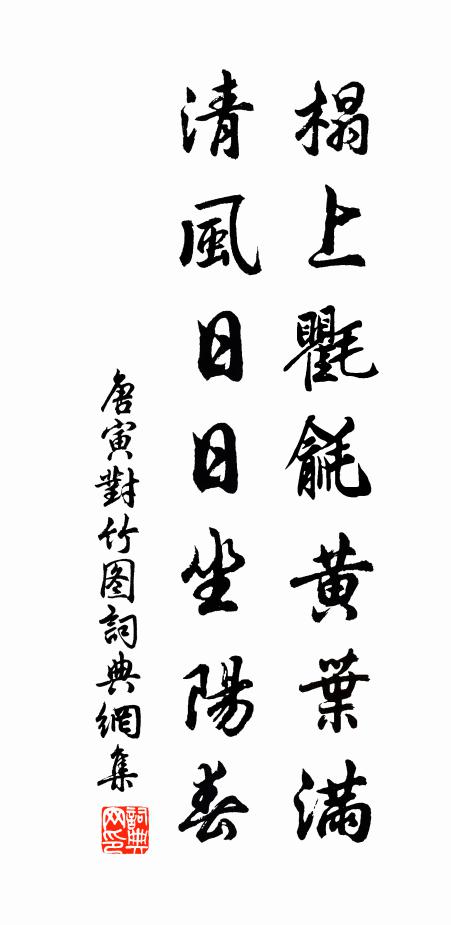 榻上氍毹黄葉滿
清風日日坐陽春
唐寅對竹图詞典網集
詞典
网印